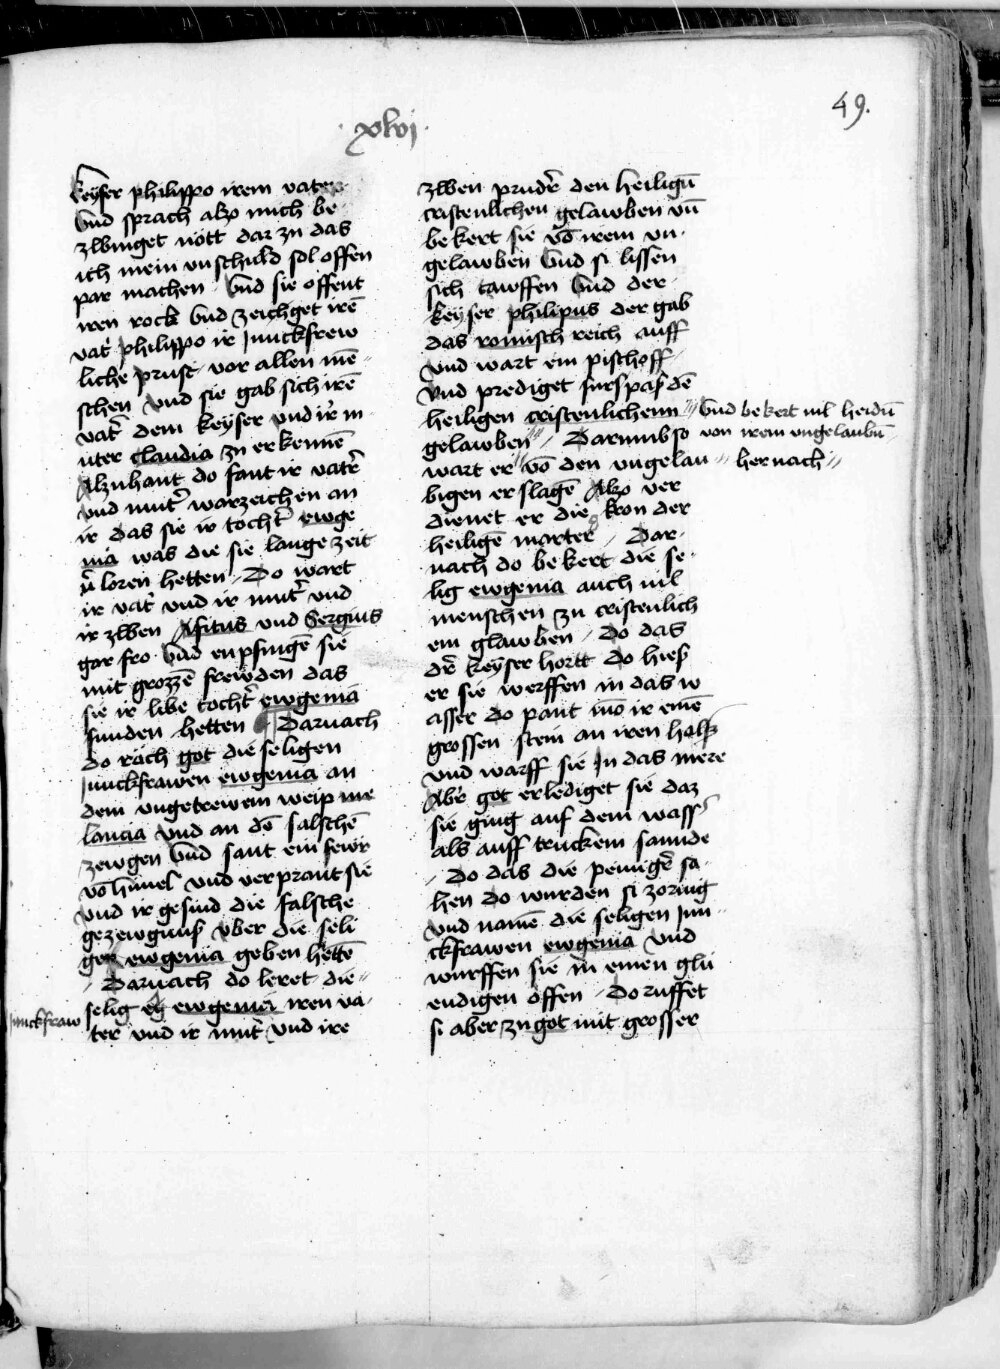 49.
xlvi
keyser philippo irem vater
Vnd sprach also mich be
zwinget nött dar zu das
ich mein vnschuld sol offen
par machen Vnd sie offent
iren rock Vnd zeichget irē
vat̓ philippo ir Junckfrew
liche prust vor allen mē
schen Vnd sie gab sich irē
vat̓ dem keyser vnd ir̓ m
uter claudia zu erkennē
Alzuhant do fant ir vat̓
vnd mut̓ warzeichen an
ir das sie ir tocht̓ ewge
nia was die sie lange zeit
v̓loren hetten Do wart
ir vat̓ vnd ir mut̓ vnd
ir zwen Afitus vnd Sergius
gar fro Vnd enpfingē sie
mit grozzē frewden das
sie ir libe tocht̓ ewgenia
funden hetten Darnach
do räch got die seligen
Junckfrawen ewgenia an
dem vngetrewem weip me
lancia Vnd an dē falschē
zewgen Vnd sant ein fewr
vō himel Vnd verprant sie
vnd ir gesind die falsche
gezewgnuß vber die seli
gen ewgenia geben hettē
Darnach do leret die
selig ewgenia iren va
Junckfraw
ter vnd ir mut̓ vnd ire
zwen prud̓e den heiligū
cristenlichen gelawben vn̄
bekert sie vō irem vn
gelawben Vnd si lissen
sich tawffen Vnd der
keyser philipus der gab
das romisch reich auff
Vnd wart ein pischoff
Vnd prediget furspaß dē
heiligen cristenlichenn Vnd bekert vil heidū
gelawben Darumb so von irem vngelaubū
wart er vō den vngelau hernach
bigen erslagē Also ver
dienet er die kron der
heiligē marter Dar
nach do bekert die se
lig ewgenia auch vil
menschen zu cristenlich
em glawben Do das
d̓e keyser hortt do hieß
er sie werffen in das w
asser do pant mō ir einē
grossen stein an iren halß
Vnd warff sie Jn das mere
Ab̓ got erlediget sie daz
sie ging auf dem wass̓
als auff truckem sannde
Do das die peinig̓ sa
hen do wurden si zornig
Vnd namē die seligen Jun
ckfrawen ewgenia Vnd
wurffen sie in einen glü
endigen offen Do ruffet
si aber zu got mit grosser